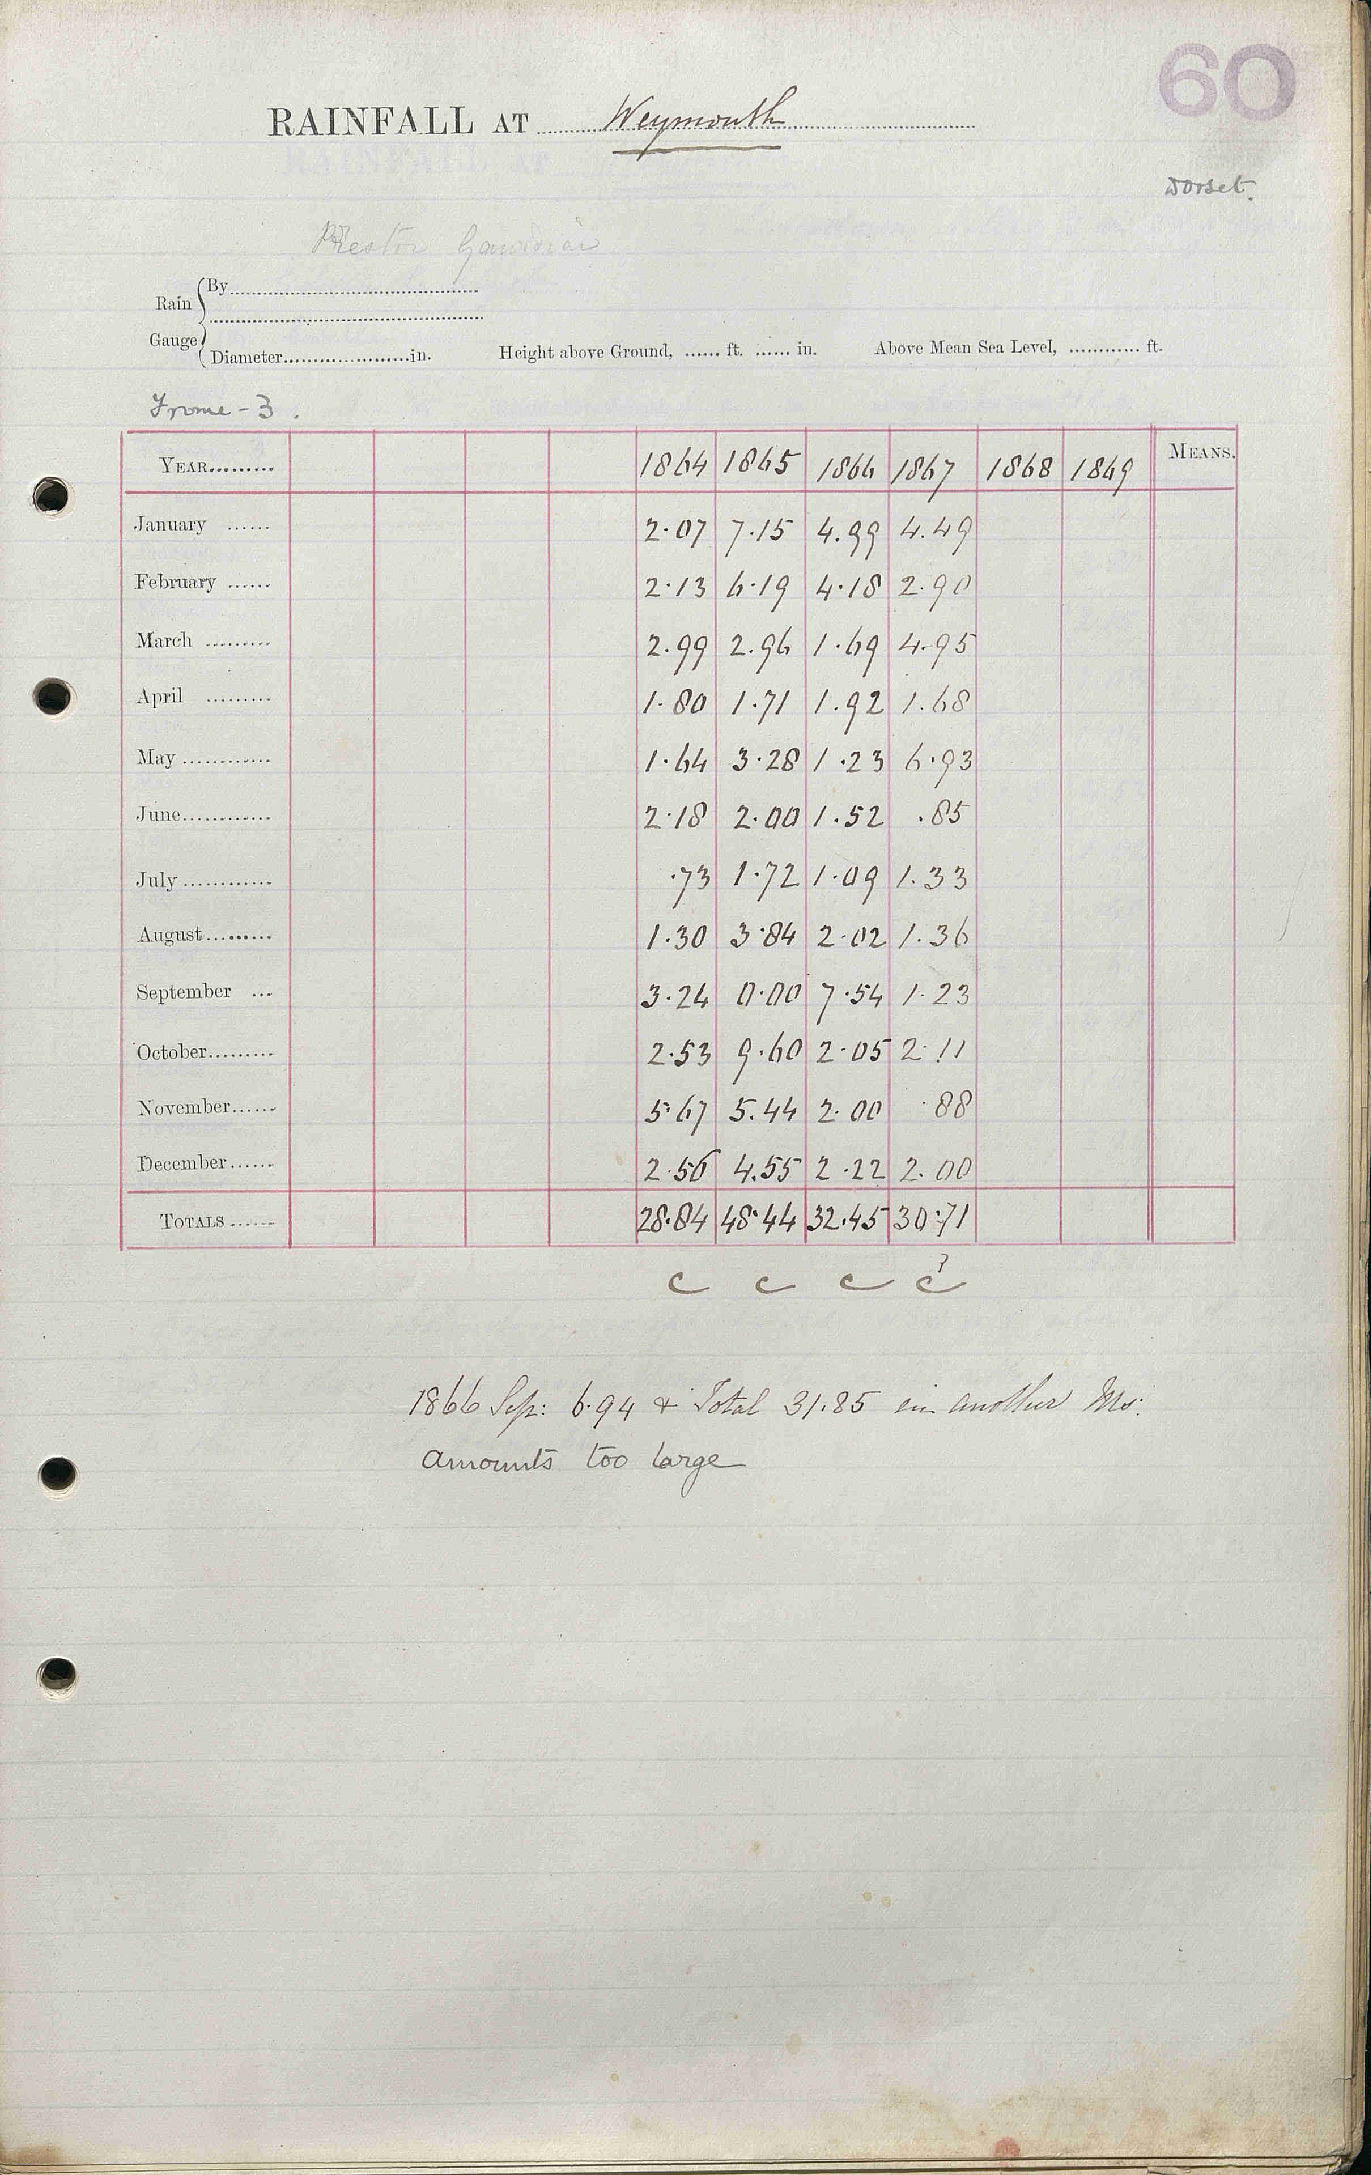 60
RAINFALL AT Weymouth
Dorset.
Rain Gauge
By
Diameter in. Height above Ground, ...... ft. ...... in. Above Mean Sea Level, ............ ft.
Frome - 3.
YEAR......... 1864 1865 1866 1867 1868 1869 MEANS.
January ...... 2.07 7.15 4.99 4.49
February ...... 2.13 6.19 4.18 2.90
March ......... 2.99 2.96 1.69 4.95
April ......... 1.80 1.71 1.92 1.68
May ............ 1.64 3.28 1.23 6.93
June............ 2.18 2.00 1.52 .85
July ............ .73 1.72 1.09 1.33
August......... 1.30 3.84 2.02 1.36
September ... 3.24 0.00 7.54 1.23
October......... 2.53 9.60 2.05 2.11
November...... 5.67 5.44 2.00 .88
December...... 2.56 4.55 2.22 2.00
TOTALS ...... 28.84 48.44 32.45 30.71
c c c c ?
1866 Sep: 6.94 & Total 31.85 in another Ms.
amounts too large